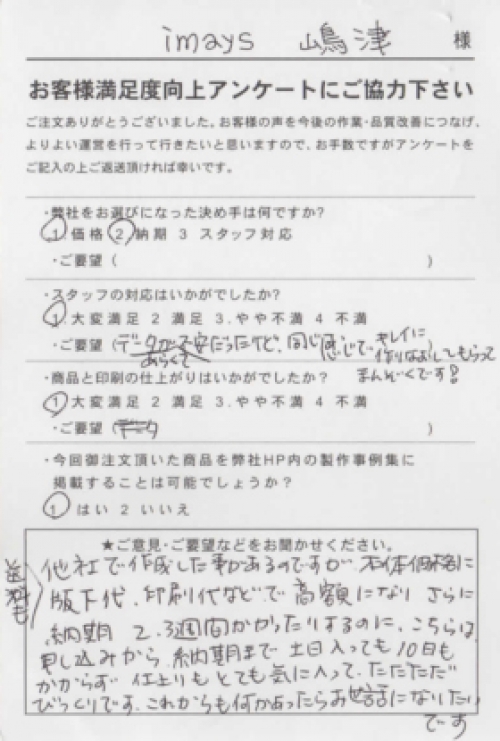 imays 嶋津 様
お客様満足度向上アンケートにご協力下さい
ご注文ありがとうございました。お客様の声を今後の作業・品質改善につなげ、
よりよい運営を行って行きたいと思いますので、お手数ですがアンケートを
ご記入の上ご返送頂ければ幸いです。
・弊社をお選びになった決め手は何ですか?
1.価格 2 納期 3 スタッフ対応
・ご要望 ( )
・スタッフの対応はいかがでしたか?
1.大変満足 2 満足 3.やや不満 4 不満
・ご要望 (データが あらくて だったけど、同じ感じで キレイに
作りなおしてもらって
まんぞくです!
・商品と印刷の仕上がりはいかがでしたか?
1 大変満足 2 満足 3.やや不満 4 不満
・ご要望 (データ )
・今回御注文頂いた商品を弊社HP内の製作事例集に
掲載することは可能でしょうか?
1 はい 2 いいえ
★ご意見・ご要望などをお聞かせください。
他社で作成した事があるのですが 本体価格に
送料も
版下代、印刷代などで高額になり さらに
納期 2、3週間かかったりするのに、こちらは
申し込みから 納期まで 土日入っても 10日も
かからず 仕上りもとても気に入って、ただただただ
びっくりです。これからも何かあったらお世話になりたい
です